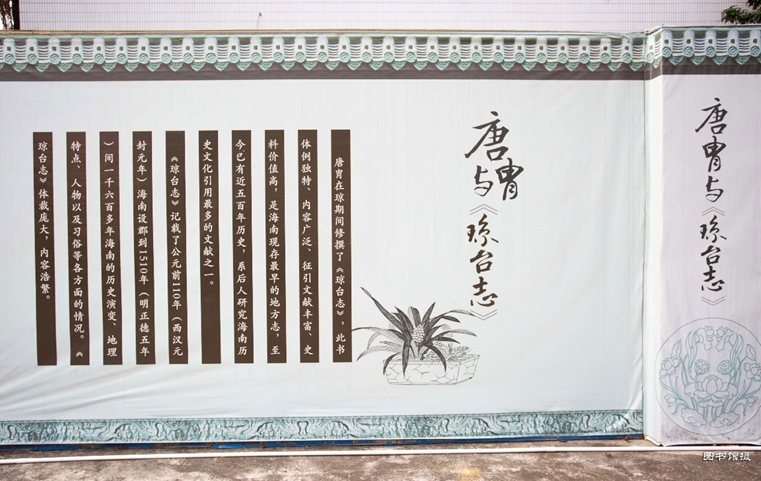 唐胄与《琼台志》
唐胄与《琼台志》
唐胄在琼期间修撰了《琼台志》，此书
体例独特、内容广泛、征引文献丰富、史
料价值高，是海南现存最早的地方志，至
今已有近五百年历史，系后人研究海南历
史文化引用最多的文献之一。
《琼台志》记载了公元前110年（西汉元
封元年）海南设郡到1510年（明正德五年
）间一千六百多年海南的历史演变、地理
特点、人物以及习俗等各方面的情况。《
琼台志》体裁庞大，内容浩繁。
图书馆摄